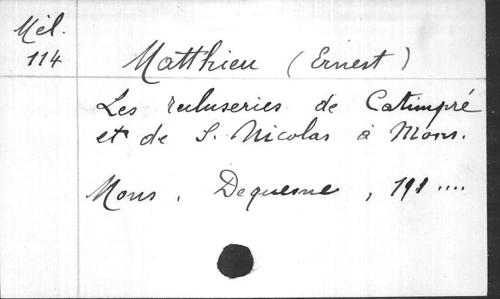 Mél.
114
Matthieu (Ernest)
Les recluseries de Catimpré
et de S. Nicolas à Mons.
Mons, Dequesne, 191....